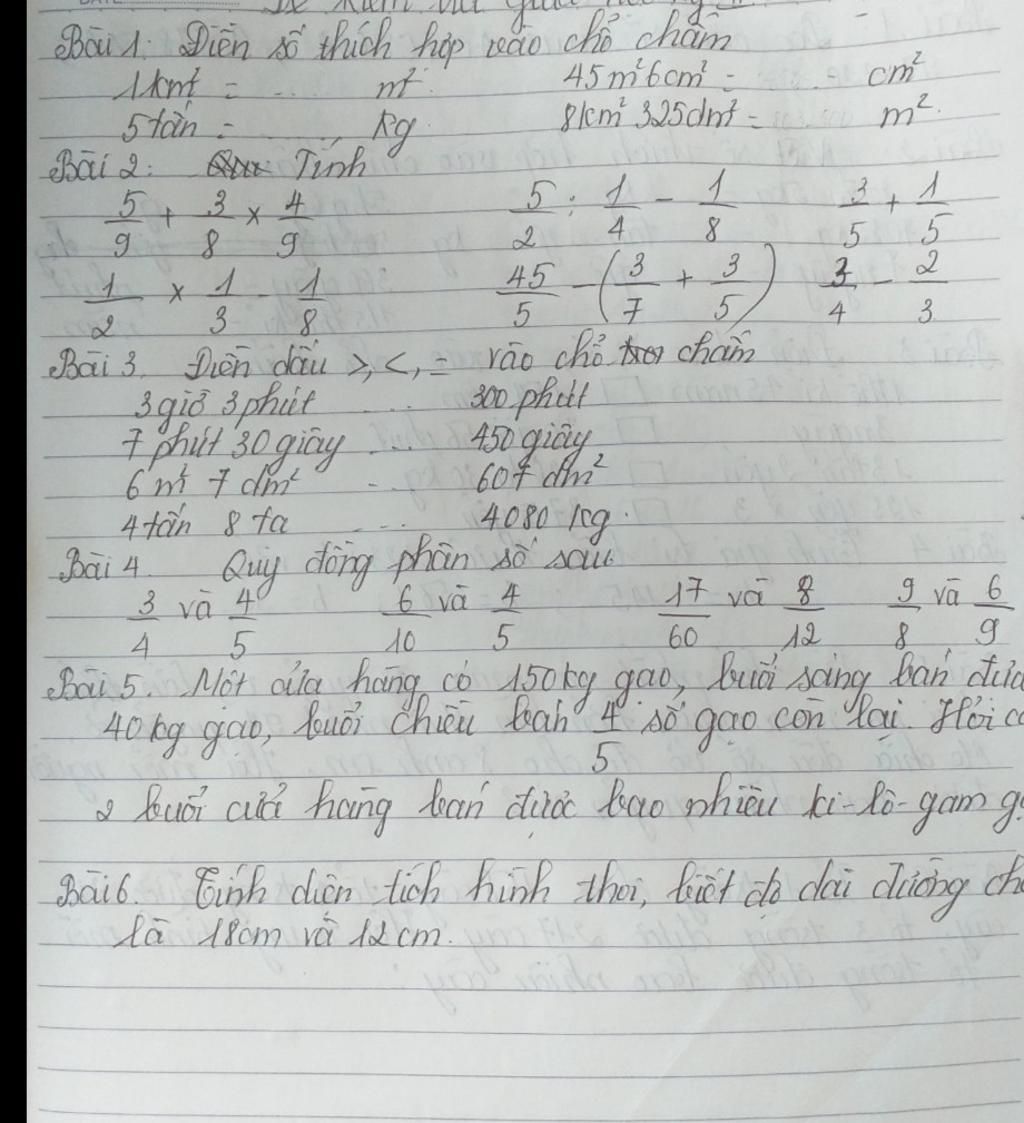 Bài 1: Điền số thích hợp vào chỗ chấm
1km² = ... m² 45m²6cm² = ... cm²
5 tấn = ... kg 8km² 325dm² = ... m²
Bài 2: Tính
5/9 + 3/8 × 4/9 5/2 : 1/4 - 1/8 3/5 + 1/5
1/2 × 1/3 - 1/8 45/5 - (3/7 + 3/5) 3/4 - 2/3
Bài 3. Điền dấu >, <, = vào chỗ chấm
3 giờ 3 phút ... 300 phút
7 phút 30 giây ... 450 giây
6 m² 7 dm² ... 607 dm²
4 tấn 8 tạ ... 4080 kg.
Bài 4 Quy đồng phân số sau
3/4 và 4/5 6/10 và 4/5 17/60 và 8/12 9/8 và 6/9
Bài 5. Một cửa hàng có 150kg gạo, buổi sáng bán đượ
40kg gạo, buổi chiều bán 4/5 số gạo còn lại. Hỏi cả
2 buổi cửa hàng bán được bao nhiêu ki-lô-gam g
Bài 6. Tính diện tích hình thoi, biết độ dài đường ch
là 18cm và 12cm.